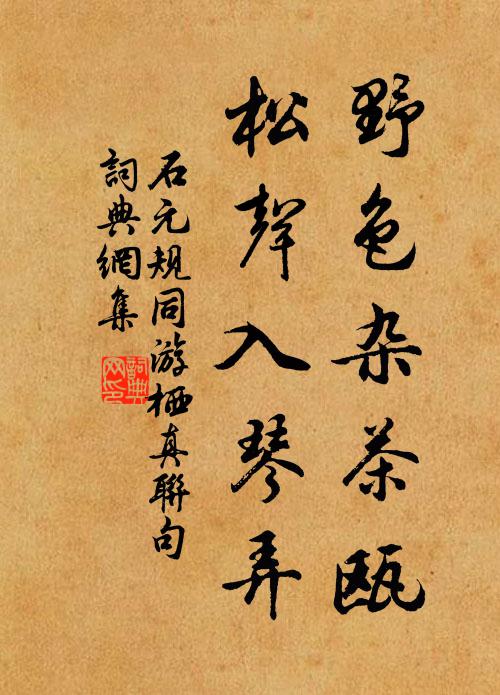 野色杂茶瓯
松聲入琴弄
石元规同游栖真聯句
詞典網集
詞典网印